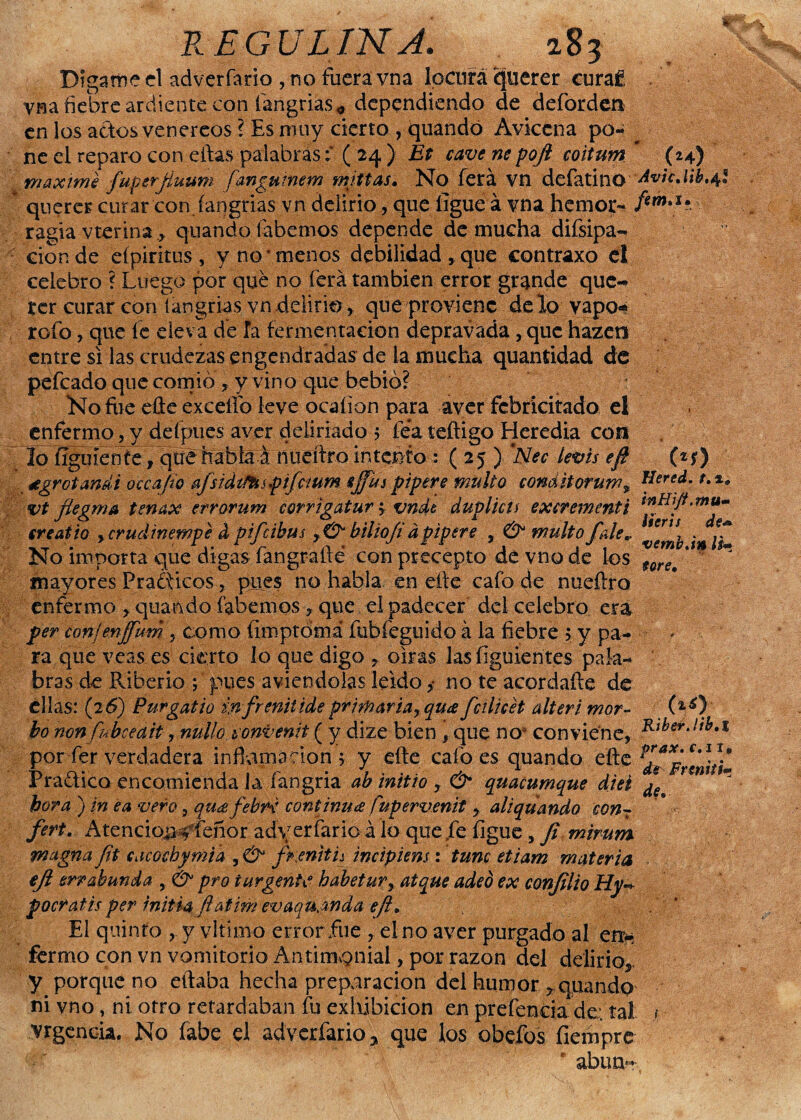 REGULINA. 283
Digame el adverſario, no fuera vna locura querer curar
vna fiebre ardiente con ſangrias, dependiendo de deſorden
en los actos venereos? Es muy cierto, quando Avicena po-
ne el reparo con eſtas palabras: (24) Et cave ne poſt coitum
maximè ſuperfluum ſanguinem mittas. No ſerà vn deſatino
querer curar con ſangrias vn delirio, que ſigue à vna hemor-
ragia vterina, quando ſabemos depende de mucha diſsipa-
cion de eſpiritus, y no menos debilidad, que contraxo el
celebro? Luego por què no ſerà tambien error grande que-
rer curar con ſangrias vn delirio, que proviene de lo vapo-
roſo, que ſe eleva de la fermentacion depravada, que hazen
entre sì las crudezas engendradas de la mucha quantidad de
peſcado que comiò, y vino que bebiò?
No fue eſte exceſſo leve ocaſion para aver febricitado el
enfermo, y deſpues aver deliriado; ſea teſtigo Heredia con
lo ſiguiente, que habla à nueſtro intento: (25) Nec levis eſt
ægrotandi occaſio aſsiduus piſcium eſſus pipere multo conditorum,
vt flegma tenax errorum corrigatur; vnde duplicis excrementi
creatio, crudinempè à piſcibus, & bilioſi à pipere, & multo ſale.
No importa que digas ſangraſte con precepto de vno de los
mayores Practicos, pues no habla en eſte caſo de nueſtro
enfermo, quando ſabemos, que el padecer del celebro era
per conſenſſum, como ſimptoma ſubſeguido à la fiebre; y pa-
ra que veas es cierto lo que digo, oiras las ſiguientes pala-
bras de Riberio; pues aviendolas leido, no te acordaſte de
ellas: (26) Purgatio in frenitide primaria, quæ ſcilicèt alteri mor-
bo non ſubceait, nullo convenit (y dize bien, que no conviene,
por ſer verdadera inflamacion; y eſte caſo es quando eſte
Practico encomienda la ſangria ab initio, & quacumque diei
hora) in ea verò, quæ febri continuæ ſupervenit, aliquando con-
fert. Atencion ſeñor adverſario à lo que ſe ſigue, ſi mirum
magna ſit cacochymia, & frenitis incipiens: tunc etiam materia
eſt errabunda, & pro turgente habetur, atque adeò ex conſilio Hy-
pocratis per initia ſtatim evaquanda eſt.
El quinto, y vltimo error fue, el no aver purgado al en-
fermo con vn vomitorio Antimonial, por razon del delirio,
y porque no eſtaba hecha preparacion del humor, quando
ni vno, ni otro retardaban ſu exhibicion en preſencia de tal
vrgencia. No ſabe el adverſario, que los obeſos ſiempre
abun-
(24)
Avic. lib. 4.
fem. 1.
(25)
Hered. t. 2.
in Hiſt. mu-
lieris de-
vemb. in li-
tore.
(26)
Riber. lib. 1
prax. c. 11.
de Freniti-
de.